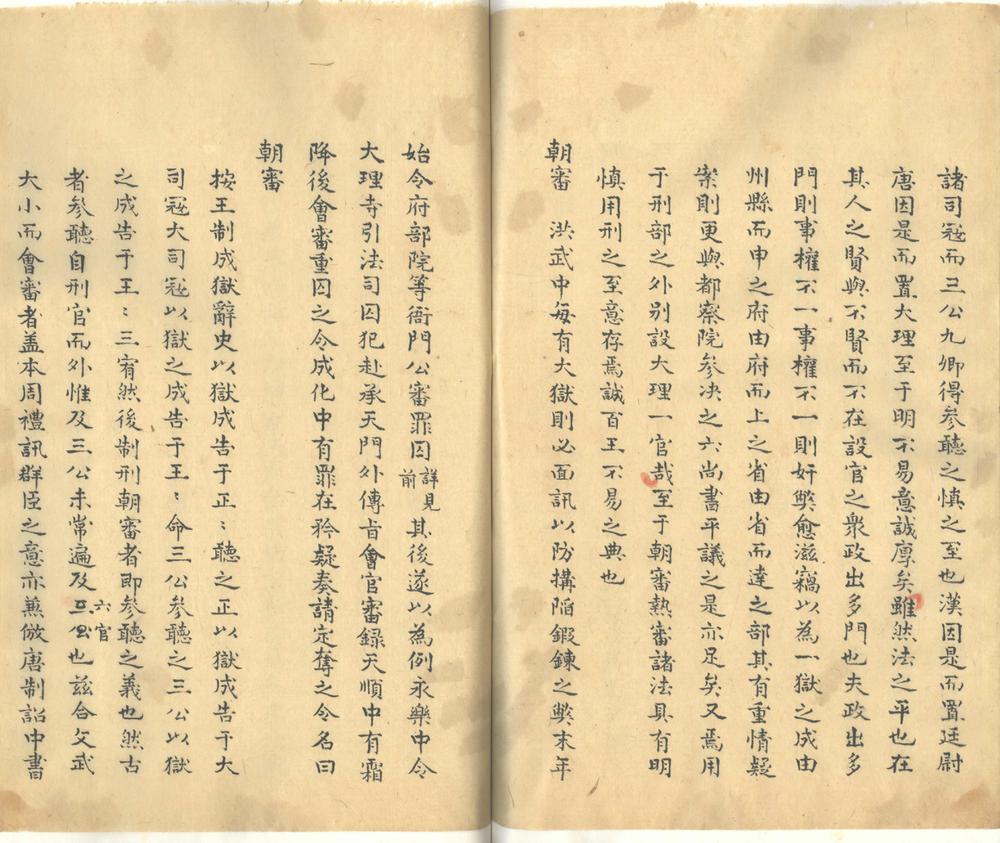 諸司寇而三公九卿得参聽之慎之至也漢因是而置廷尉
唐因是而置大理至于明不易意誠厚矣雖然法之平也在
其人之賢與不賢而不在設官之衆政出多門也夫政出多
門則事權不一事權不一則奸獘愈滋竊以為一獄之成由
州縣而申之府由府而上之省由省而達之部其有重情疑
案則更與都察院参决之六尚書平議之是亦足矣又焉用
于刑部之外别設大理一官哉至于朝審熱審諸法具有明
慎用刑之至意存焉誠百王不易之典也
朝審　洪武中每有大獄則必面訊以防搆陷鍜鍊之獘末年
始令府部院等衙門公審罪囚詳見前其後遂以為例永樂中令
大理寺引法司囚犯赴承天門外傳旨會官審録天順中有霜
降後會審重囚之令成化中有罪在矜疑奏請定奪之令名曰
朝審
按王制成獄辭史以獄成告于正〻聽之正以獄成告于大
司寇大司寇以獄之成告于王〻命三公参聽之三公以獄
之成告于王〻三宥然後制刑朝審者即参聽之義也然古
者参聽自刑官而外惟及三公未常遍及六官也兹合文武
大小而會審者盖本周禮訊群臣之意亦兼倣唐制詔中書